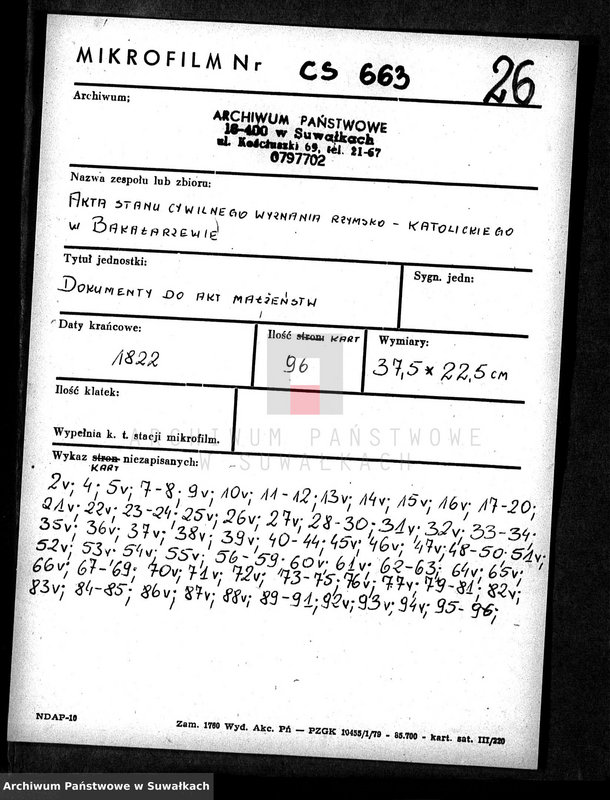 MIKROFILM Nr CS 663 26
Archiwum;
ARCHIWUM PAŃSTWOWE
16-400 w Suwałkach
ul. Kościuszki 69, tel. 21-67
0797702
Nazwa zespołu lub zbioru:
AKTA STANU CYWILNEGO WYZNANIA RZYMSKO - KATOLICKIEGO
W BAKAŁARZEWIE
Tytuł jednostki:
DOKUMENTY DO AKT MAŁŻEŃSTW
Sygn. jedn:
Daty krańcowe:
1822
Ilość stron: KART
96
Wymiary:
37,5 x 22,5 CM
Ilość klatek:
Wypełnia k. t. stacji mikrofilm.
ARCHIWUM PAŃSTWOWE
W SUWAŁKACH
Wykaz stron niezapisanych:
KART
2v; 4; 5v; 7-8; 9v; 10v; 11-12; 13v; 14v; 15v; 16v; 17-20;
21v; 22v; 23-24; 25v; 26v; 27v; 28-30; 31v; 32v; 33-34;
35v; 36v; 37v; 38v; 39v; 40-44; 45v; 46v; 47v; 48-50; 51v;
52v; 53v; 54v; 55v; 56-59; 60v; 61v; 62-63; 64v; 65v;
66v; 67-69; 70v; 71v; 72v; 73-75; 76v; 77v; 79-81; 82v;
83v; 84-85; 86v; 87v; 88v; 89-91; 92v; 93v; 94v; 95-96;
NDAP-16
Zam. 1760 Wyd. Akc. Pń — PZGK 10455/1/79 - 85.700 - kart. sat. III/220
Archiwum Państwowe w Suwałkach